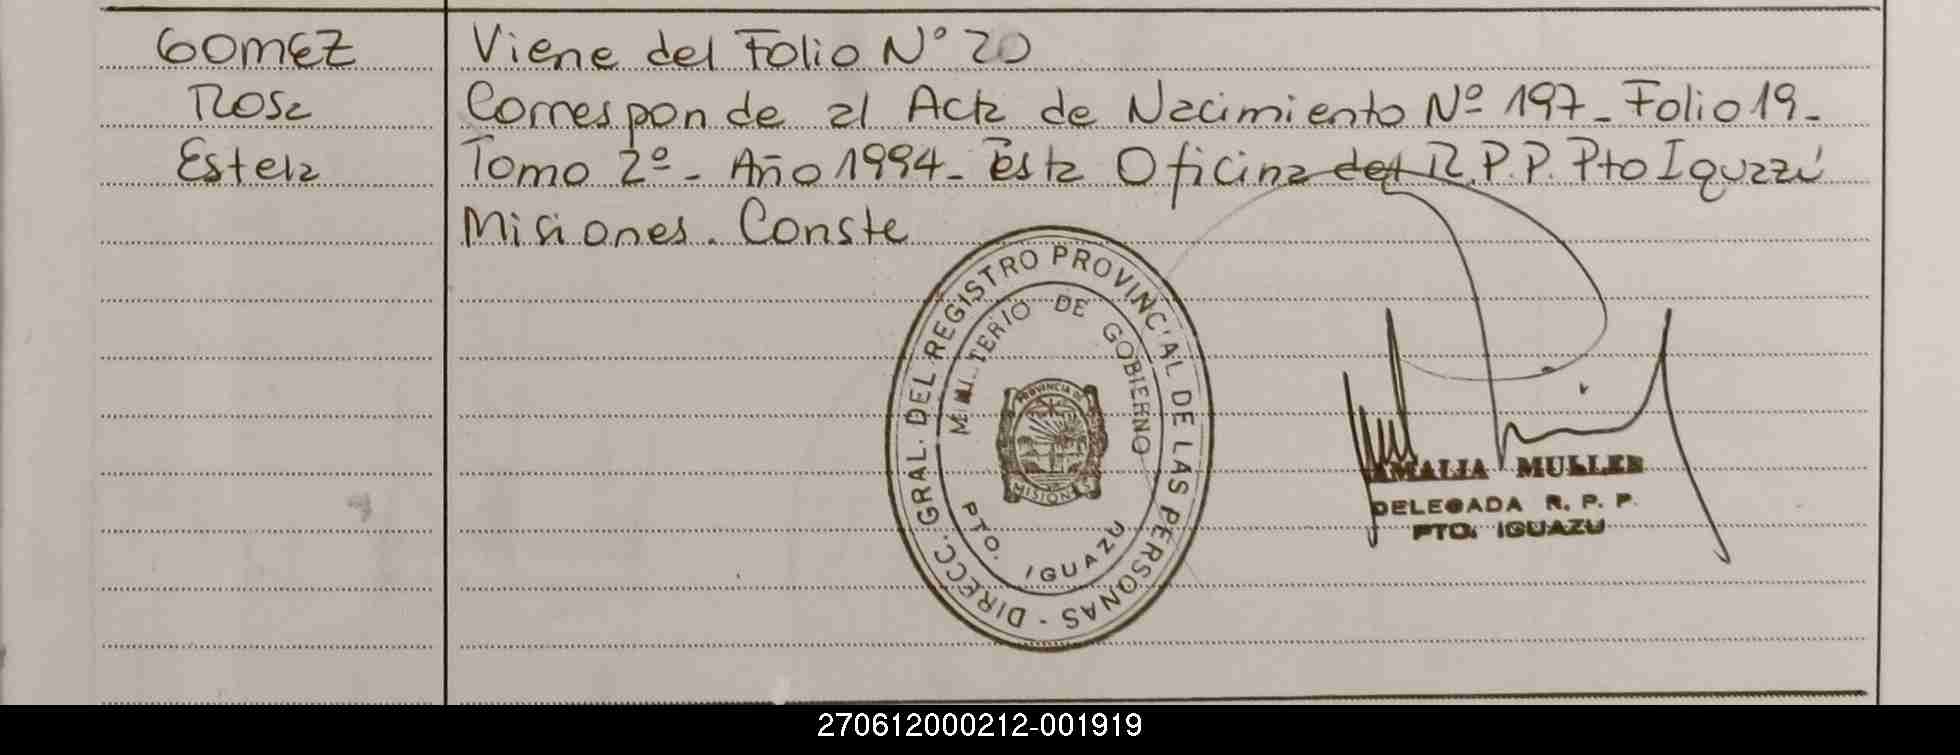 GOMEZ
Rosa
Estela
Viene del Folio Nº 20
Corresponde al Acta de Nacimiento Nº 197 - Folio 19 -
Tomo 2º - Año 1994 - Esta Oficina del R.P.P. Pto Iguazú
Misiones. Conste
DIRECC. GRAL. DEL REGISTRO PROVINCIAL DE LAS PERSONAS -
MINISTERIO DE GOBIERNO
PROVINCIA DE
MISIONES
PTO. IGUAZU
AMALIA MULLER
DELEGADA R. P. P.
PTO. IGUAZU
270612000212-001919